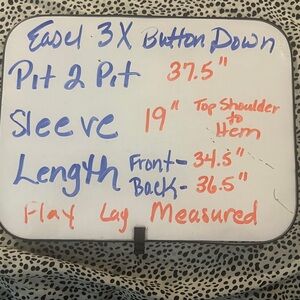 Easel 3X Button Down
Pit 2 Pit 37.5"
Sleeve 19" Top Shoulder to Hem
Length Front- 34.5"
Back- 36.5"
Flat Lay Measured